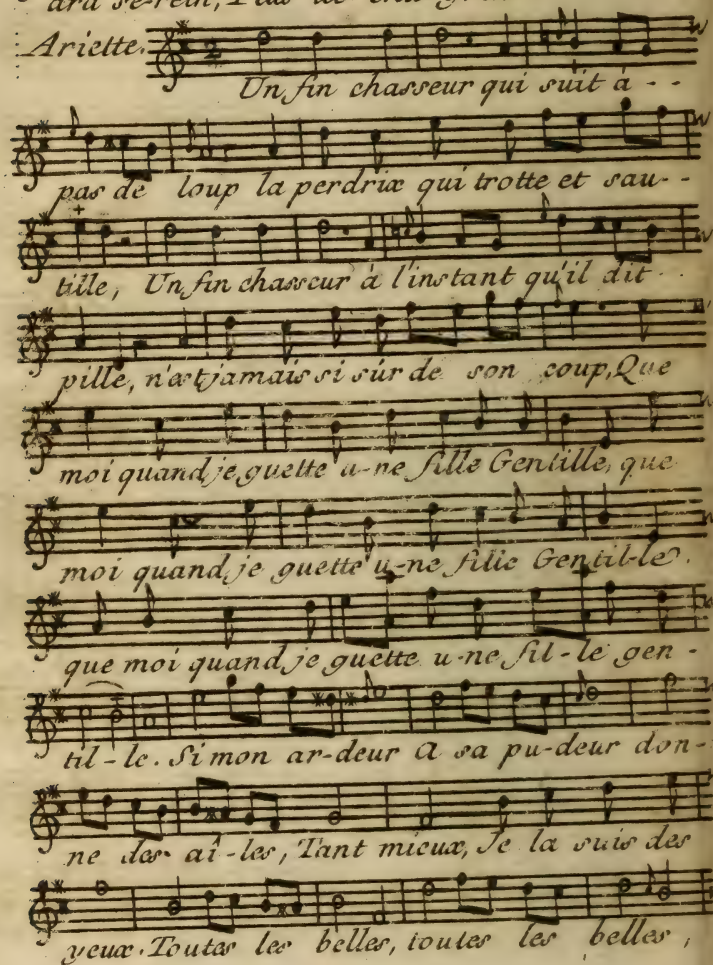 ard se-rein, Pas de
Ariette.
Un fin chasseur qui suit à - -
pas de loup la perdrix qui trotte et sau- -
tille, Un fin chasseur à l'instant qu'il dit
pille, n'est jamais si sûr de son coup, Que
moi quand je guette u-ne fille Gentille, que
moi quand je guette u-ne fille Gentil-le.
que moi quand je guette u-ne fil-le gen -
til-le. Si mon ar-deur A sa pu-deur don-
ne des aî-les, Tant mieux, Je la suis des
yeux. Toutes les belles, toutes les belles,